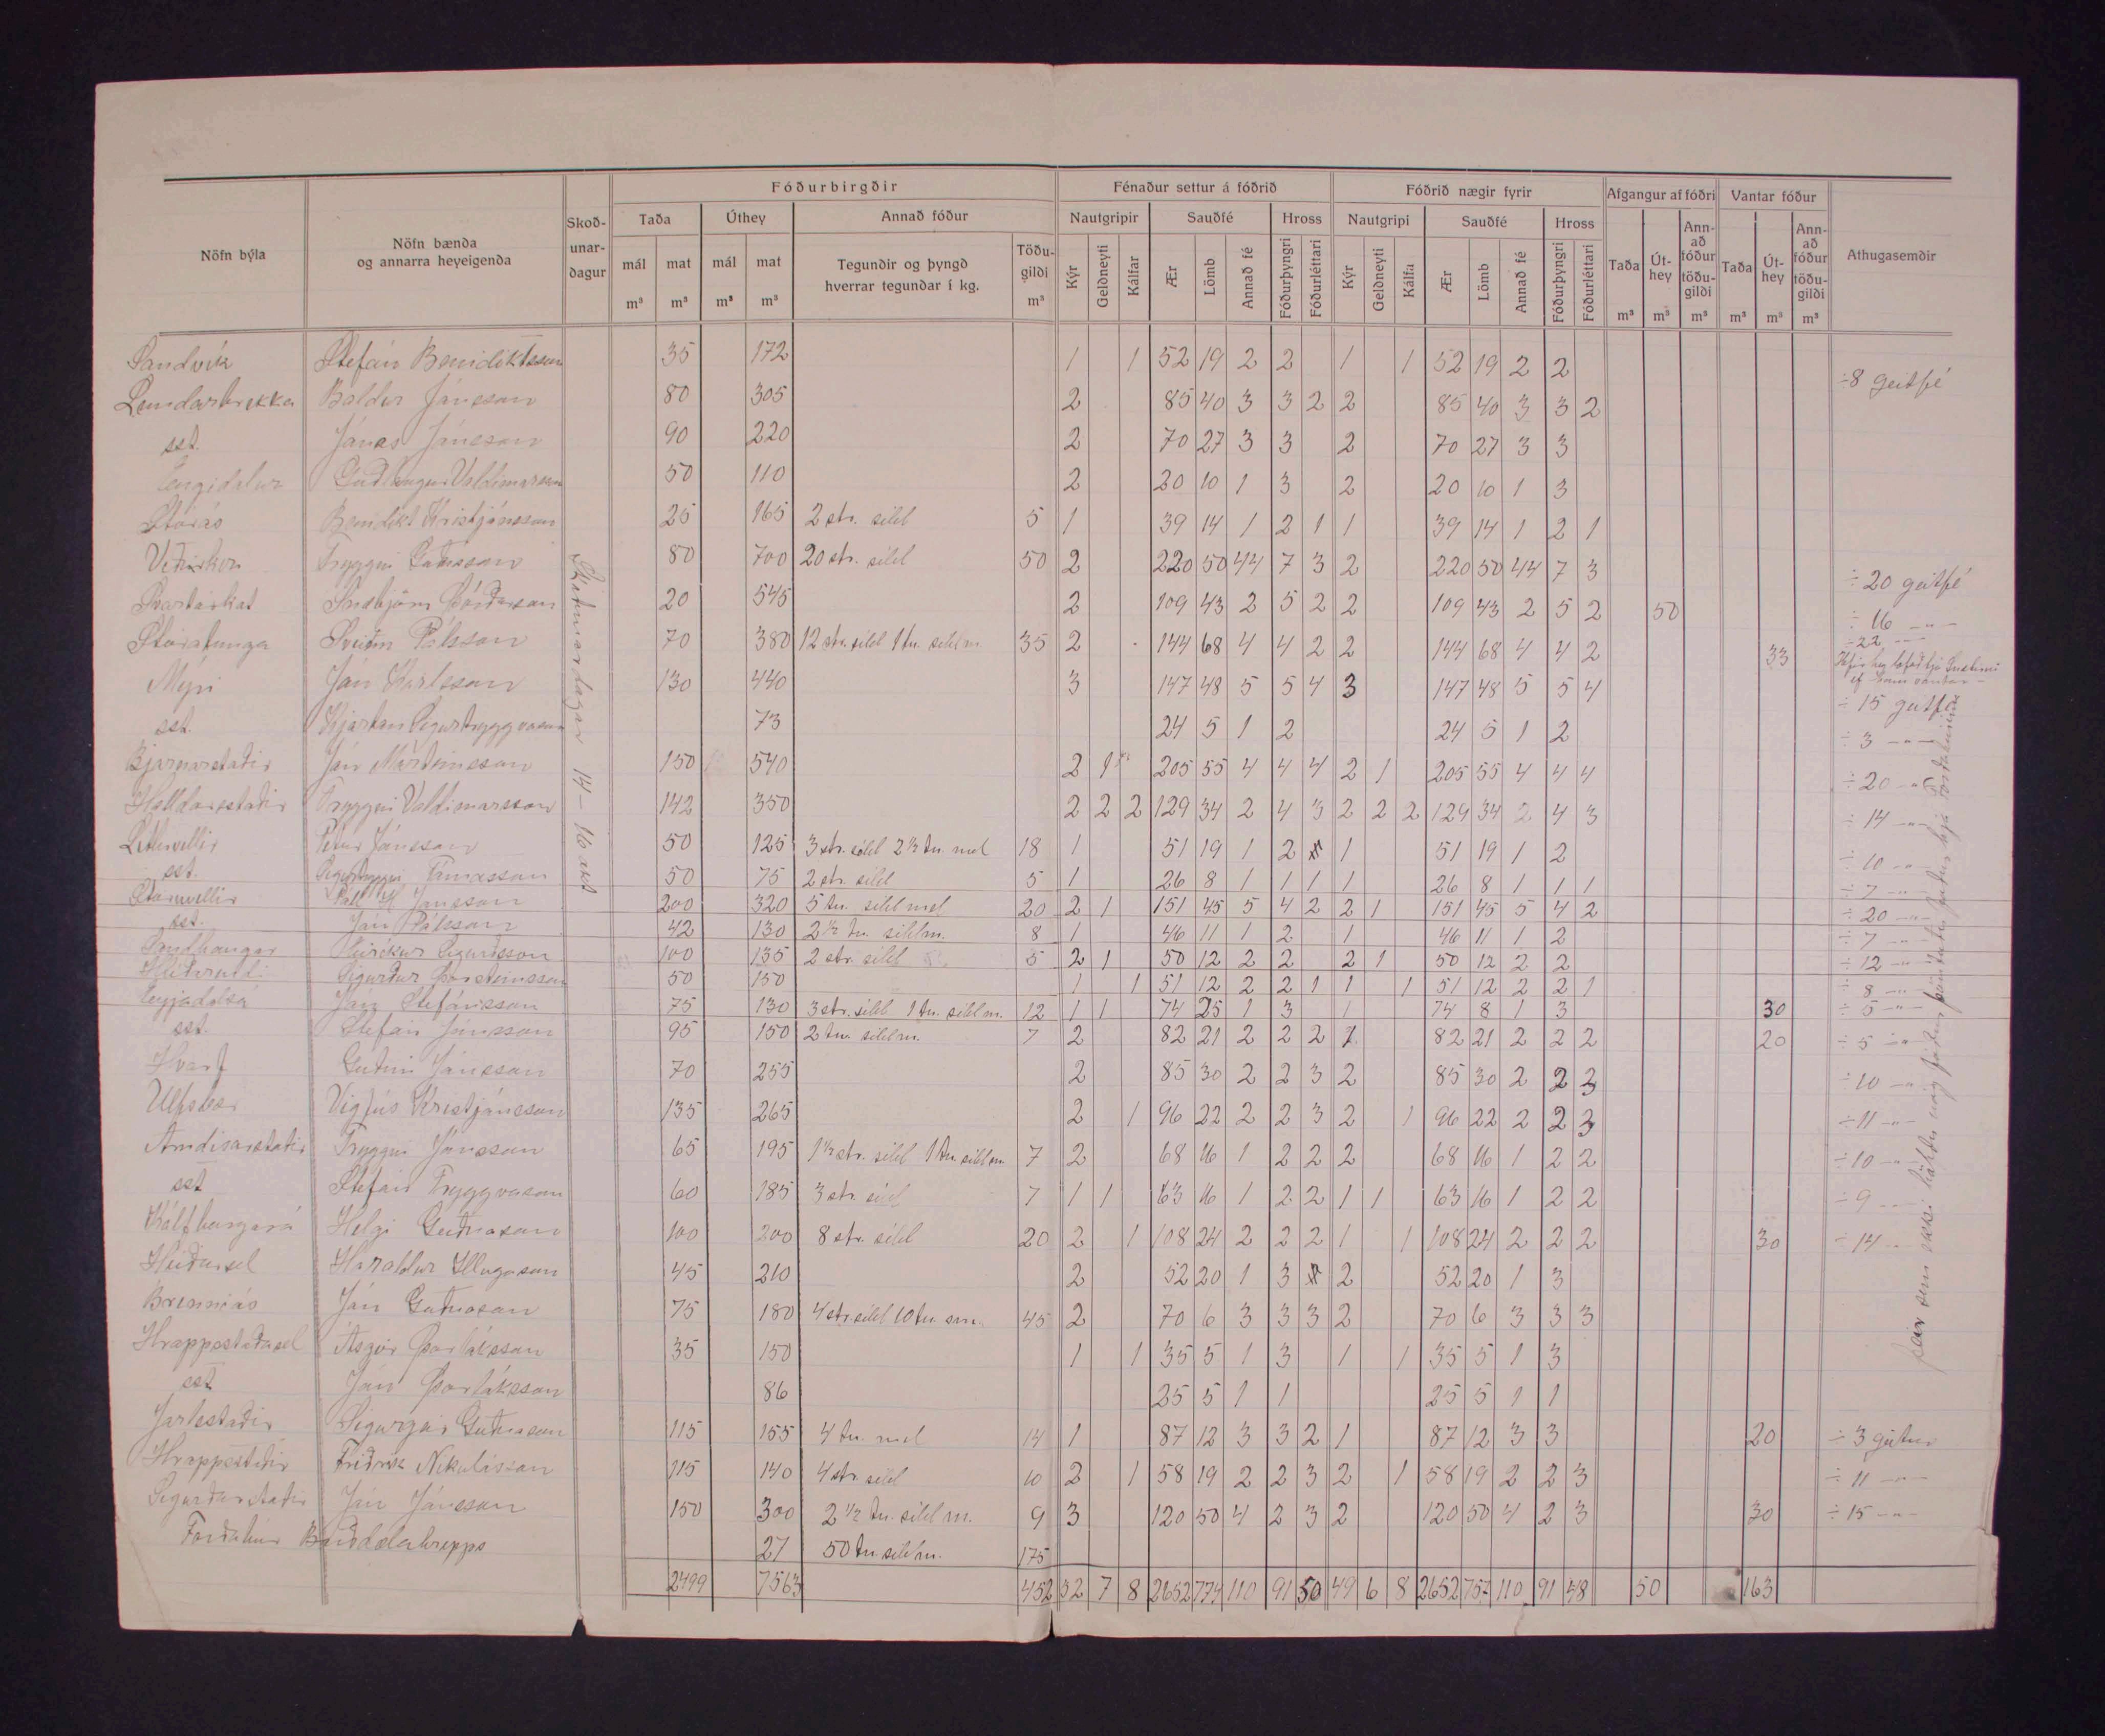 Nöfn býla
Nöfn bænda og annarra heyeigenda
Skoð-unar-dagur
Fóðurbirgðir
Taða
Úthey
Annað fóður
mál m³
mat m³
mál m³
mat m³
Tegundir og þyngd hverrar tegundar í kg.
Töðu-gildi m³
Fénaður settur á fóðrið
Nautgripir
Sauðfé
Hross
Kýr
Geldneyti
Kálfar
Ær
Lömb
Annað fé
Fóðurþyngri
Fóðurléttari
Fóðrið nægir fyrir
Nautgripi
Sauðfé
Hross
Kýr
Geldneyti
Kálfa
Ær
Lömb
Annað fé
Fóðurþyngri
Fóðurléttari
Afgangur af fóðri
Taða m³
Út-hey m³
Ann-að fóður töðu-gildi m³
Vantar fóður
Taða m³
Út-hey m³
Ann-að fóður töðu-gildi m³
Athugasemdir
Skoðunardagar 14–16 okt
Sandvík Stefán Benidiktsson 35 172 1 1 52 19 2 2 1 1 52 19 2 2 ÷8 geitfé
Lundarbrekka Baldur Jónsson 80 305 2 85 40 3 3 2 2 85 40 3 3 2
sst. Jónas Jónsson 90 220 2 70 27 3 3 2 70 27 3 3
Engidalur Guðlaugur Valdimarsson 50 110 2 20 10 1 3 2 20 10 1 3
Stórás Benidikt Kristjánsson 25 165 2 str. síld 5 1 39 14 1 2 1 1 39 14 1 2 1
Víðirker Tryggvi Guðnason 80 700 20 str. síld 50 2 220 50 44 7 3 2 220 50 44 7 3 ÷ 20 geitfé
Svartárkot Snæbjörn Þórðarson 20 545 2 109 43 2 5 2 2 109 43 2 5 2 50 ÷ 16 -"-
Stóratunga Sveinn Pálsson 70 380 12 str. síld 1 tn. síldm. 35 2 144 68 4 4 2 2 144 68 4 4 2 33 ÷22 -"-
Mýri Jón Karlsson 130 440 3 147 48 5 5 4 3 147 48 5 5 4 ÷ 15 geitfé
sst. Kjartan Sigurtryggvason 73 24 5 1 2 24 5 1 2 ÷ 3 -"-
Bjarnarstaðir Jón Marteinsson 150 540 2 1 205 55 4 4 4 2 1 205 55 4 4 4 ÷20 -"-
Halldórsstaðir Tryggvi Valdimarsson 142 350 2 2 2 129 34 2 4 3 2 2 2 129 34 2 4 3 ÷ 14 -"-
Litluvellir Pétur Jónsson 50 125 3 str. síld 2½ tn. mél 18 1 51 19 1 2 1 51 19 1 2 ÷ 10 -"-
sst. Sigurtryggvi Tómasson 50 75 2 str. síld 5 1 26 8 1 1 1 1 26 8 1 1 1 ÷ 7 -"-
Stóruvellir Páll H Jónsson 200 320 5 tn. síldmél 20 2 1 151 45 5 4 2 2 1 151 45 5 4 2 ÷ 20 -"-
sst. Jón Pálsson 42 130 2½ tn. síldm. 8 1 46 11 1 2 1 46 11 1 2 ÷ 7 -"-
Sandhaugar Eiríkur Sigurðsson 100 135 2 str. síld 5 2 1 50 12 2 2 2 1 50 12 2 2 ÷ 12 -"-
Sigurður Þorsteinsson 50 150 1 1 51 12 2 2 1 1 1 51 12 2 2 1 ÷ 8 -"-
Eyjadalsá Jón Stefánsson 75 130 3 str. síld 1 tn. síldm. 12 1 1 74 25 1 3 1 74 8 1 3 30 ÷ 5 -"-
sst. Stefán Jónsson 95 150 2 tn. síldm. 7 2 82 21 2 2 2 1 82 21 2 2 2 20 ÷ 5 -"-
Hvarf Guðni Jónsson 70 255 2 85 30 2 2 3 2 85 30 2 2 3 ÷10 -"-
Úlfsbær Vigfús Kristjánsson 135 265 2 1 96 22 2 2 3 2 1 96 22 2 2 3 ÷11 -"-
Arndísarstaðir Tryggvi Jónsson 65 195 1½ str. síld 1 tn. síldm. 7 2 68 16 1 2 2 2 68 16 1 2 2 ÷10 -"-
sst Stefán Tryggvason 60 185 3 str. síld 7 1 1 63 16 1 2 2 1 1 63 16 1 2 2 ÷ 9 -"-
Kálfborgará Helgi Guðnason 100 200 8 str. síld 20 2 1 108 24 2 2 2 1 1 108 24 2 2 2 30 ÷ 14 -"-
Heiðarsel Haraldur Illugason 45 210 2 52 20 1 3 2 52 20 1 3
Brenniás Jón Guðnason 75 180 4 str síld 10 tn. sm. 45 2 70 6 3 3 3 2 70 6 3 3 3
Hrappstaðasel Ásgeir Þorláksson 35 150 1 1 35 5 1 3 1 1 35 5 1 3
sst Jón Þorláksson 86 25 5 1 1 25 5 1 1
Jarlsstaðir Sigurgeir Guðnason 115 155 4 tn. mél 14 1 87 12 3 3 2 1 87 12 3 3 20 ÷ 3 geitur
Hrappsstaðir Friðrik Nikulásson 115 140 4 str. síld 10 2 1 58 19 2 2 3 2 1 58 19 2 2 3 ÷ 11 -"-
Sigurðarstaðir Jón Jónsson 150 300 2½ tn. síldm. 9 3 120 50 4 2 3 2 120 50 4 2 3 30 ÷ 15 -"-
Forðabúr Bárðdælahrepps 27 50 tn. síldm. 175
2499 7563 452 52 7 8 2652 774 110 91 50 49 6 8 2652 757 110 91 48 50 163
þeir sem ekki höfðu nóg fóður pöntuðu fóður hjá Forðabúrinu